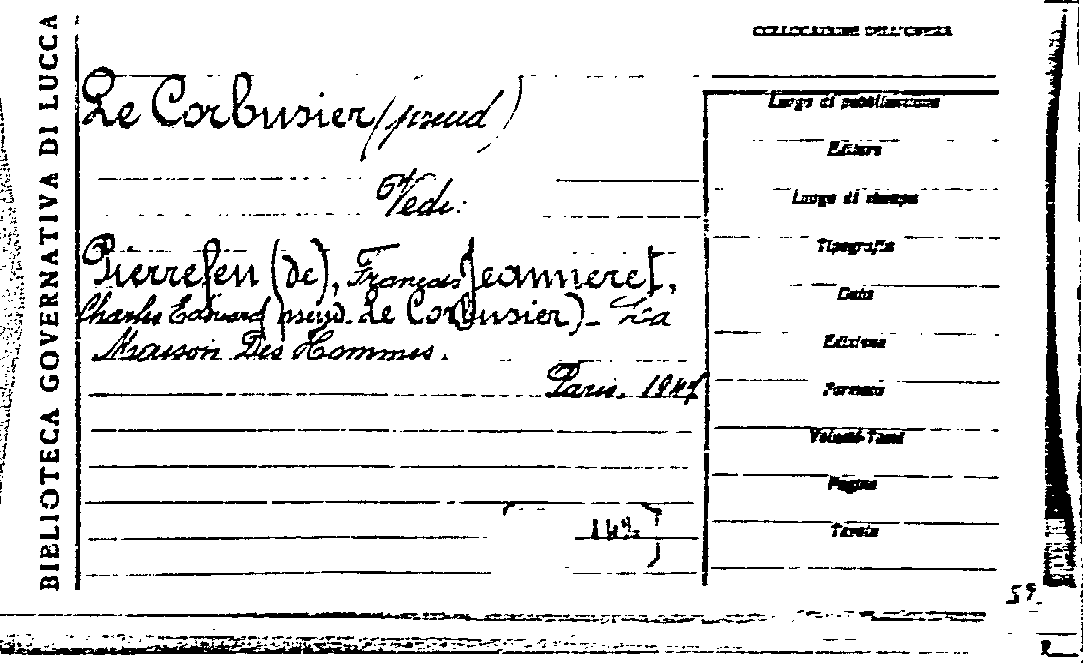 BIBLIOTECA GOVERNATIVA DI LUCCA
COLLOCAZIONE DELL'OPERA
Le Corbusier (pseud)
Vedi:
Pierrefeu (de), François Jeanneret,
Charles Edouard (pseud. Le Corbusier) - La
Maison Des Hommes.
Paris, 1947
Luogo di pubblicazione
Editore
Luogo di stampa
Tipografia
Data
Edizione
Formato
Volumi-Tomi
Pagine
Tavole
59.